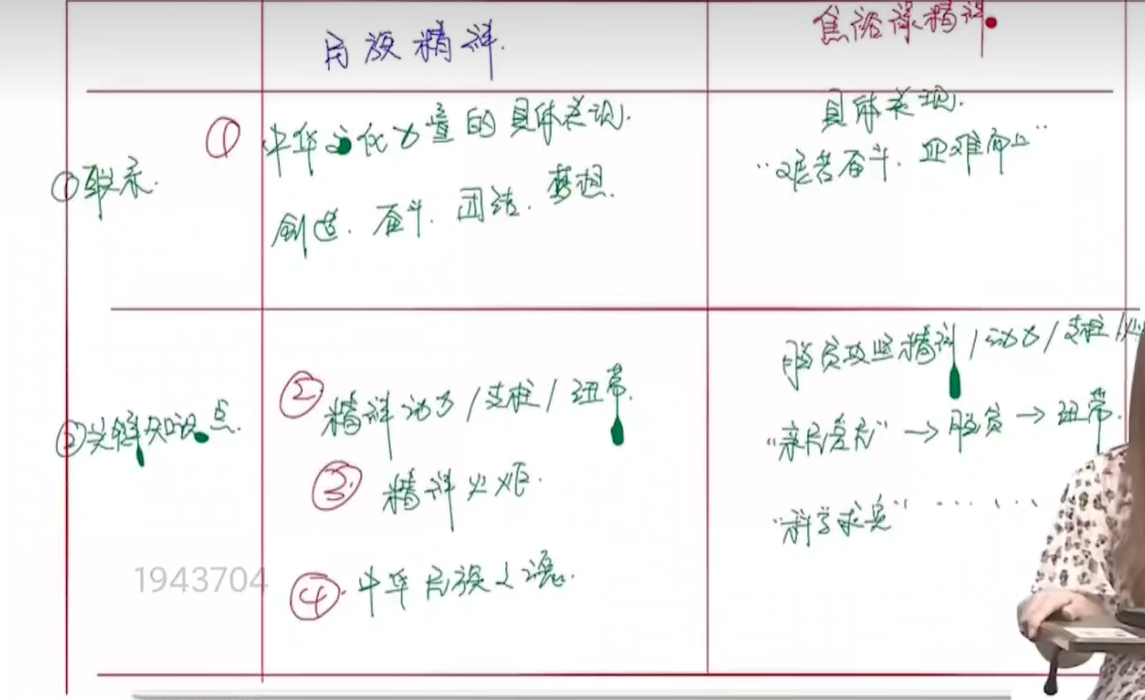 民族精神.
焦裕禄精神
①联系.
① 中华文化力量的具体表现.
创造.奋斗.团结.梦想.
具体表现.
"艰苦奋斗.迎难而上"
②关键知识点.
② 精神动力/支柱/纽带.
③ 精神火炬.
④.中华民族之魂.
脱贫攻坚精神/动力/支柱/火
"亲民爱民"→脱贫→纽带.
"科学求实"......
1943704